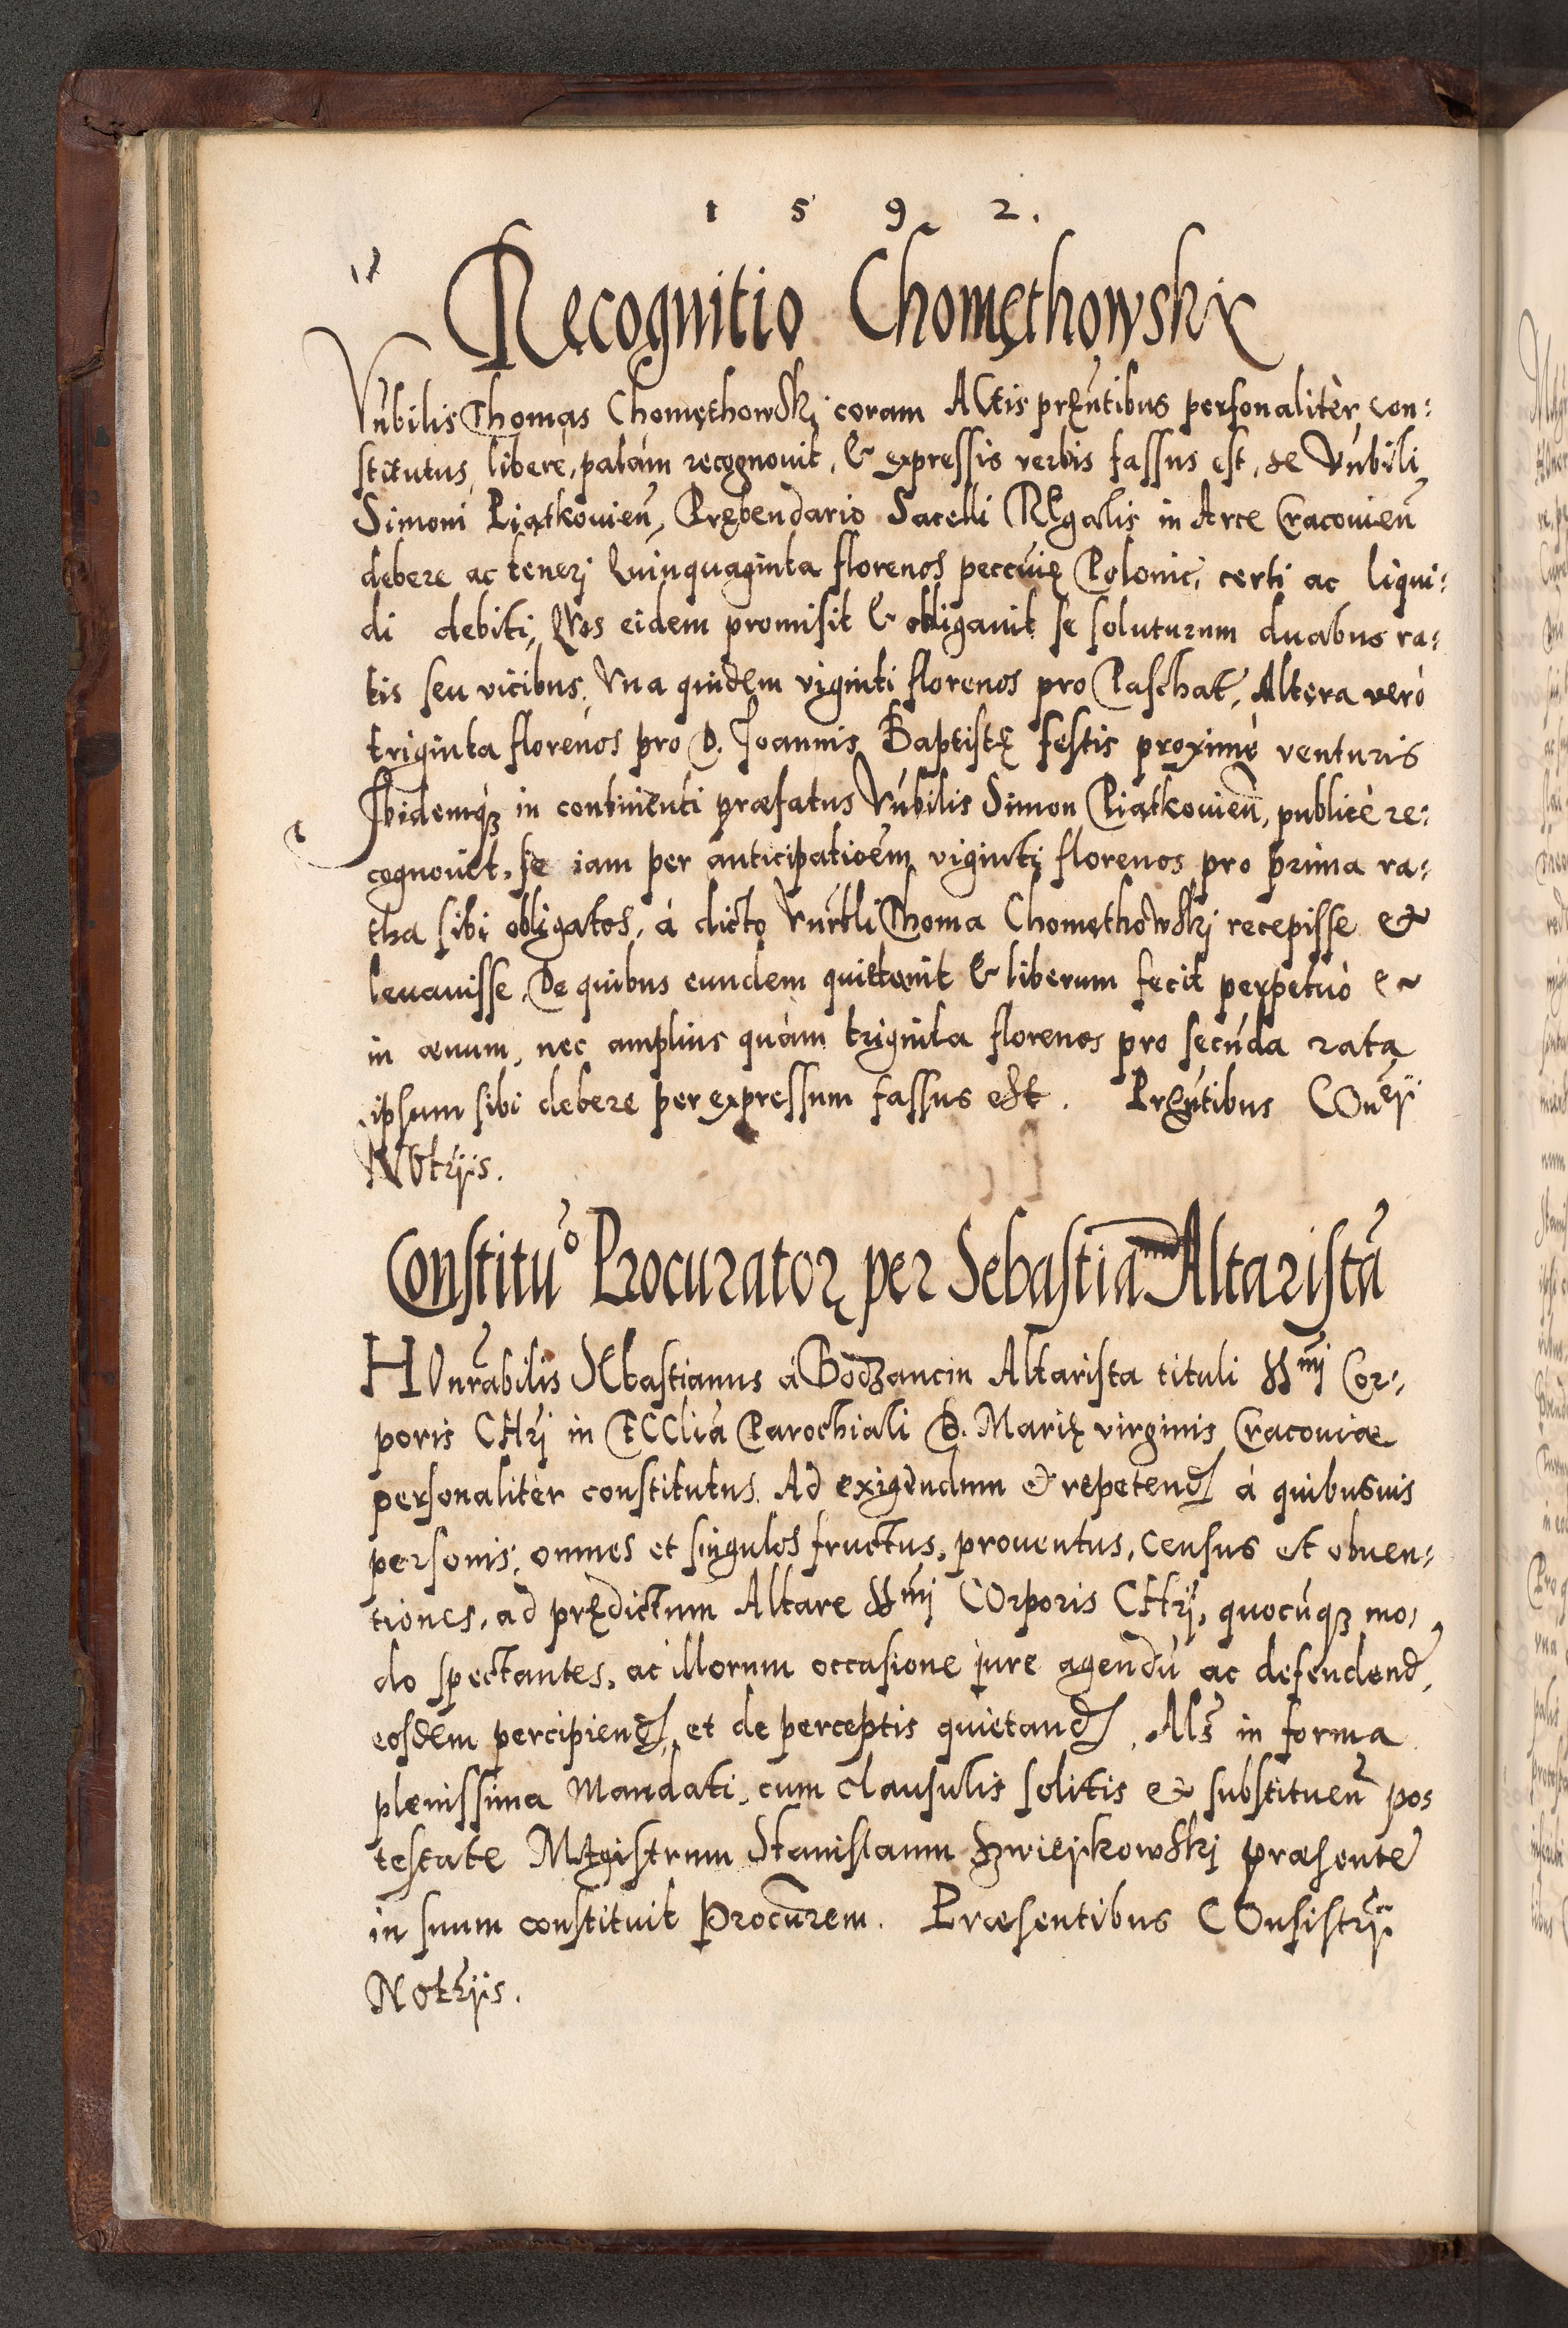 1 5 9 2.
Recognitio Chomęthowski
Vnbilis Thomas Chomęthowskj coram ACtis pręntibus personalitèr con:
stitutus, liberè, palám recognouit, & expressis verbis fassus est, se Vnbili
Simoni Piątkouien, Prębendario Sacelli REgalis in Arce Cracouien
debere ac tenerj Quinquaginta florenos peccunię Polonic, certi ac liqui:
di debiti, Qvos eidem promisit & obligauit se soluturum duabus ra:
tis seu vicibus. Vna quidem viginti florenos pro Paschat, Altera verò
triginta florenos pro D. Joannis Baptistę festis proximè venturis
Ibidemqꝫ in continenti præfatus Vnbilis Simon Piątkouien, publicè re:
cognouit, se iam per anticipatioem viginti florenos pro prima ra:
tha sibi obligatos, à dicto Vnrbli Thoma Chomęthowskj recepisse et
leuauisse. De quibus eundem quietauit & liberum fecit perpetuò et
in æuum, nec amplius quàm triginta florenos pro secunda rata
ipsum sibi debere per expressum fassus est. Pręntibus COnrij
NOtrijs.
Constituo Procuratorꝫ per Sebastianum Altaristã
HOnrabilis SEbastianus à Bodzancin Altarista tituli SSmj Cor:
poris CHrj in ECClia Parochiali B. Marię virginis Cracouiæ
personalitèr constitutus. Ad exigendum et repetend à quibusuis
personis, omnes et singulos fructus, prouentus, census et obuen:
tiones, ad prędictum Altare SSmj COrporis CHrj, quocunqꝫ mo:
do spectantes, ac illorum occasione jure agendũ ac defendend,
eosdem percipiend, et de perceptis quietand, Als in forma
plenissima Mandati, cum clausulis solitis et substituen po:
testate MAgistrum Stanislaum Szwieykowskj præsente
in suum constituit Procurem. Præsentibus COnsistrij
NOtrijs.